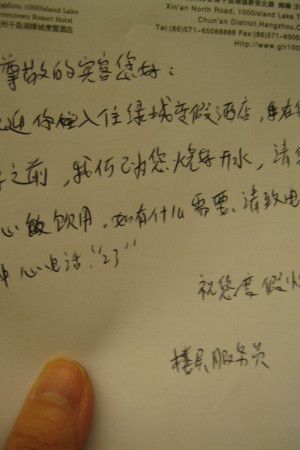 杭州 1000Island Lake
Greentown Resort Hotel
州千岛湖绿城度假酒店
Xin'an North Road, 1000Island Lake
Chun'an District,Hangzhou,C
Tel:(86)571-65088888 Fax:(86)571-650
Http://www.gt10
尊敬的宾客您好:
迎您入住绿城度假酒店,
之前,我们已为您烧好开水,请您
心饮用,如有什么需要,请致电
中心电话:"23"
祝您度假愉
楼层服务员